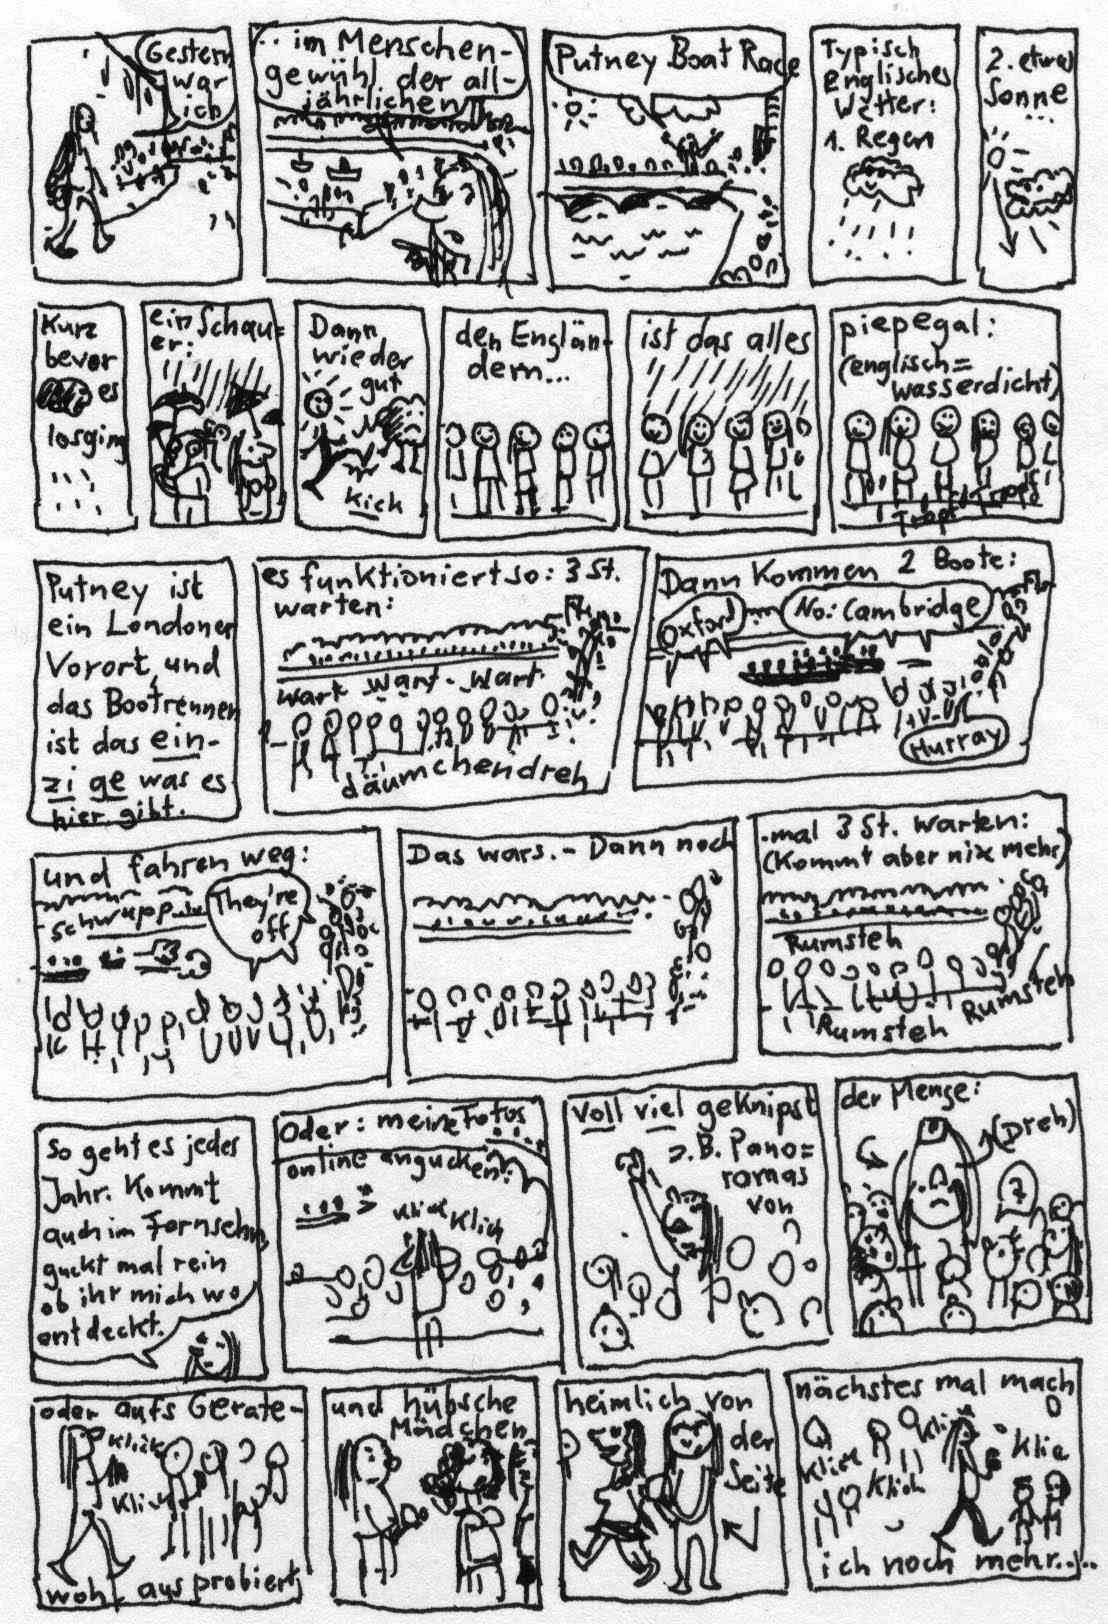 Gestern
war
ich
.. im Menschen-
gewühl der all-
jährlichen
Putney Boat Race
Typisch
Englisches
Wetter:
1. Regen
2. etwas
Sonne
...
Kurz
bevor
es
losging
ein Schau=
er:
Dann
wieder
gut
Kick
den Englän-
dern...
ist das alles
piepegal:
(englisch=
wasserdicht)
Tropf Tropf
Putney ist
ein Londoner
Vorort, und
das Bootrennen
ist das ein-
zi ge was es
hier gibt.
es funktioniert so: 3 St.
warten:
wart wart- wart
däumchendreh
Dann Kommen 2 Boote:
Oxford
No: Cambridge
Hurray
und fahren weg:
schwupp
They're
off
Das wars. - Dann noch
.mal 3 St. warten:
(Kommt aber nix mehr)
Rumsteh
Rumsteh
Rumsteh
So geht es jedes
Jahr. Kommt
auch im Fernsehn,
guckt mal rein
ob ihr mich wo
entdeckt.
Oder: meine Fotos
online angucken:
Klick Klick
Voll viel geknipst
z.B. Pano=
ramas
von
der Menge:
(Dreh)
?
oder aufs Gerate-
Klick
Klick
wohl ausprobiert,
und hübsche
Mädchen
heimlich von
der
Seite
nächstes mal mach
Klick
Klick
Klick
ich noch mehr....